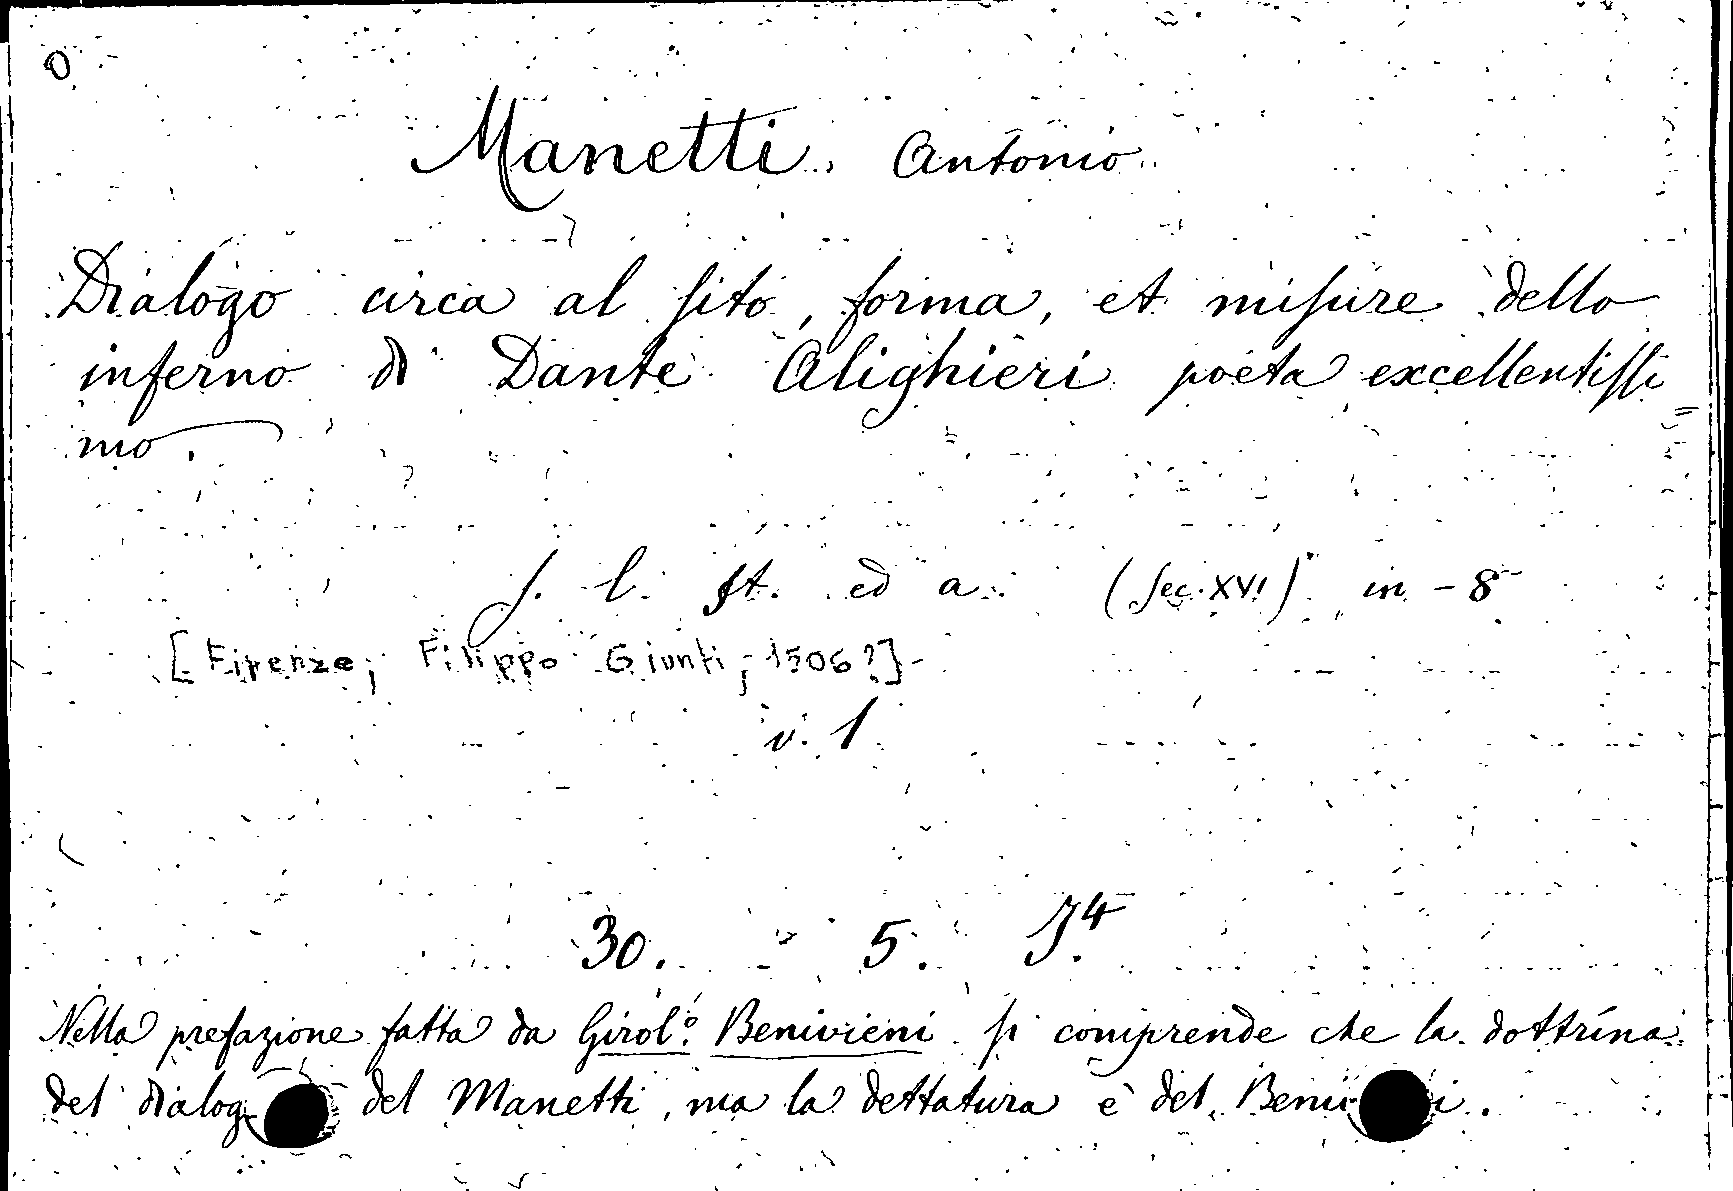 O
Manetti, Antonio.
Dialogo circa al ſito, forma, et miſure dello
inferno di Dante Alighieri poeta excellentiſſi=
mo.
ſ. l. ſt. ed a. (ſec. XVI) in-8
[Firenze, Filippo Giunti, 1506?]
v. 1
30. 5. J.4
Nella prefazione fatta da Girol.º Benivieni ſi comprende che la dottrina
del del Manetti, ma la dettatura è del